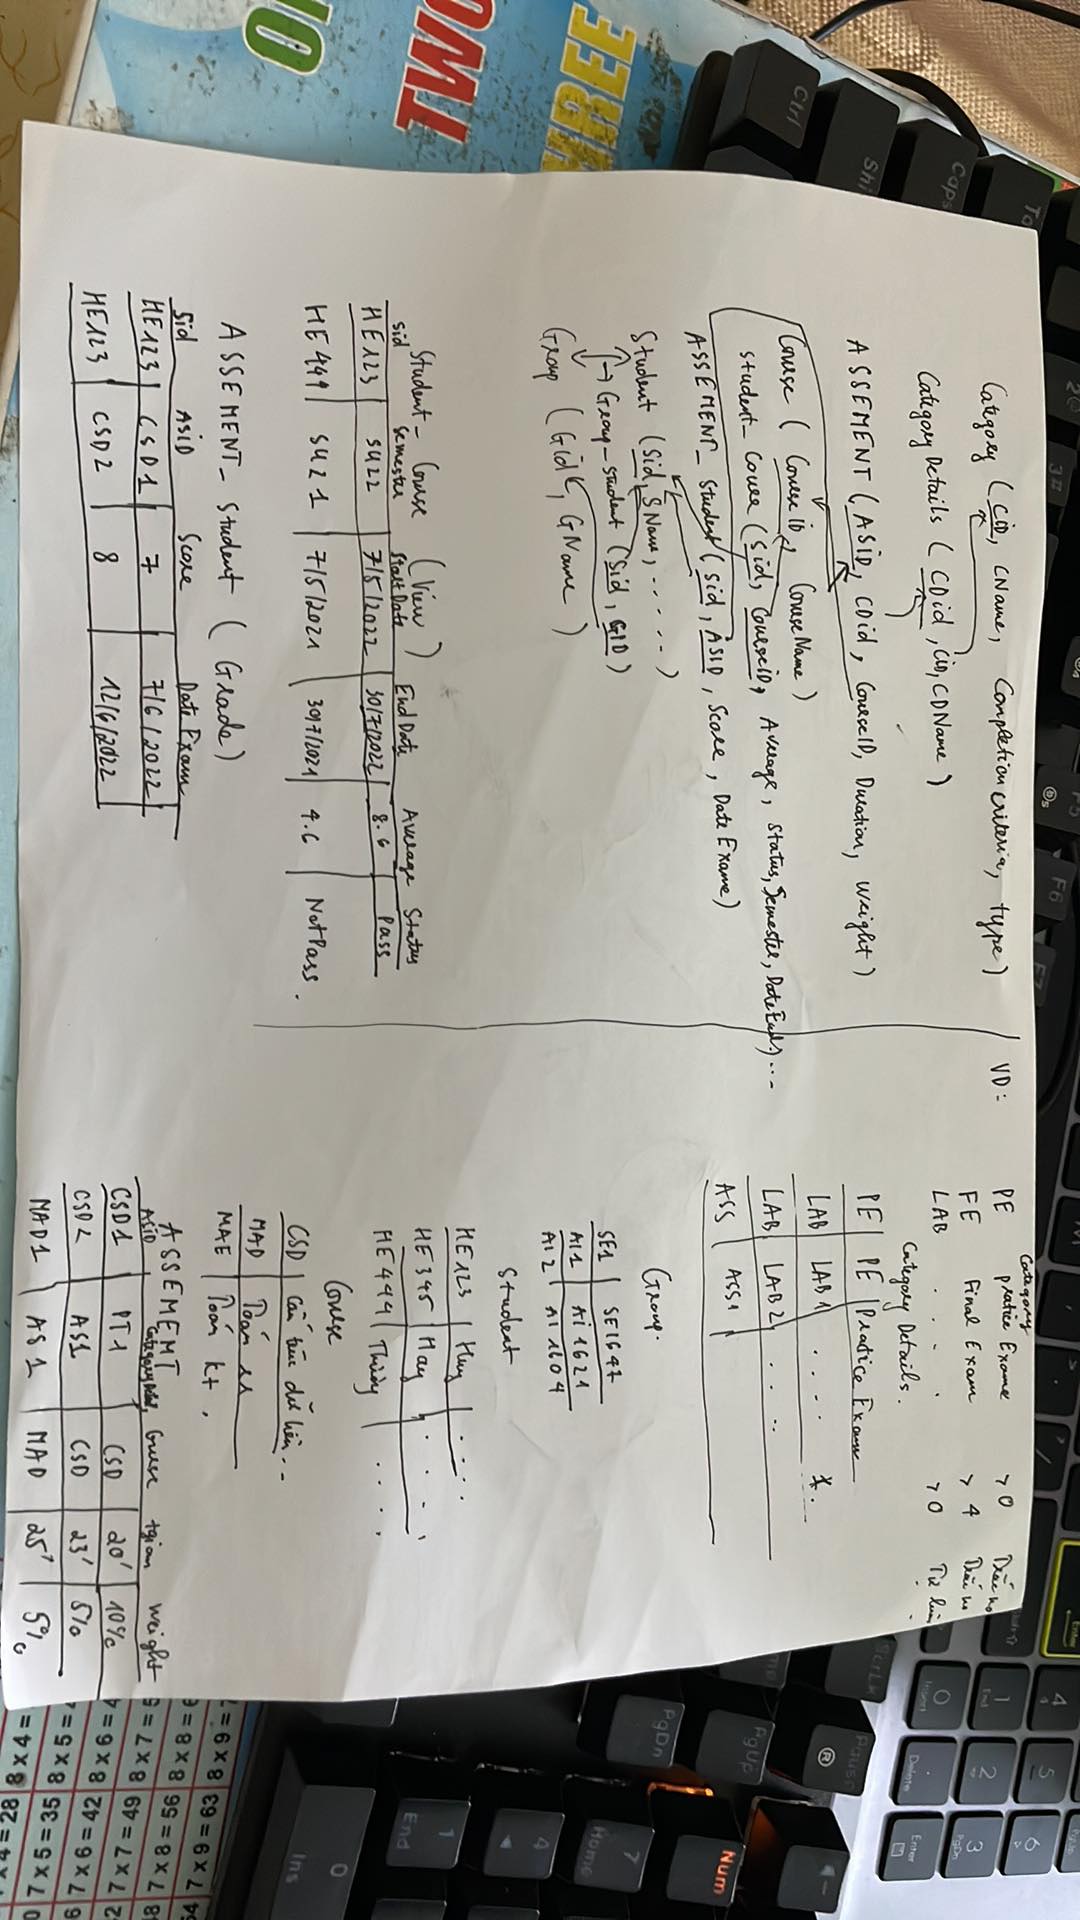 Category (CiD, CName, Completion criteria, type)
Category Details (CDid, Cid, CDName)
ASSEMENT (ASiD, CDid, CourseID, Duration, Weight)
Course (Course iD, CourseName)
Student_ Couse (Sid, CourseiD, Average, Status, Semester, DateEnd, ...
ASSEMENT_ Student (sid, ASID, Score, Date Exame)
Student (Sid, SName, .....)
Group_student (Sid, GID)
Group (Gid, GName)
Student_ Course (View)
sid Semester StartDate EndDate Average Status
HE123 SU22 7/5/2022 30/7/2022 8.6 Pass
HE444 SU21 7/5/2021 30/7/2021 4.6 NotPass.
ASSEMENT_ Student (Grade)
Sid ASiD Score Date Exam
HE123 CSD1 7 7/6/2022
HE123 CSD2 8 12/6/2022
VD:
Category
PE pratice Exame > 0
FE Final Exam > 4
LAB .... > 0
Category Details.
PE PE Pratice Exam
LAB LAB 1 ....
LAB LAB 2 ....
ASS ASS1
Group.
SE1 SE1647
AI1 Ai 1621
AI2 AI 1604
Student
HE123 Huy ....
HE345 May ....
HE444 Thùy ....
Course
CSD Cấu trúc dữ liệu..
MAD Toán
MAE Toán kt.
ASSEMEMT
ASiD CategoryDetail, Course tgian Weight
CSD1 PT1 CSD 20' 10%
CSD2 AS1 CSD 23' 5%
MAD1 AS1 MAD 25' 5%
Caps
Ctrl
F6
Enter
PgUp
PgDn
Num
7
Home
4
1
End
0
Ins
Delete
THREE
TWO
7 x 9 = 63
8 x 9 =